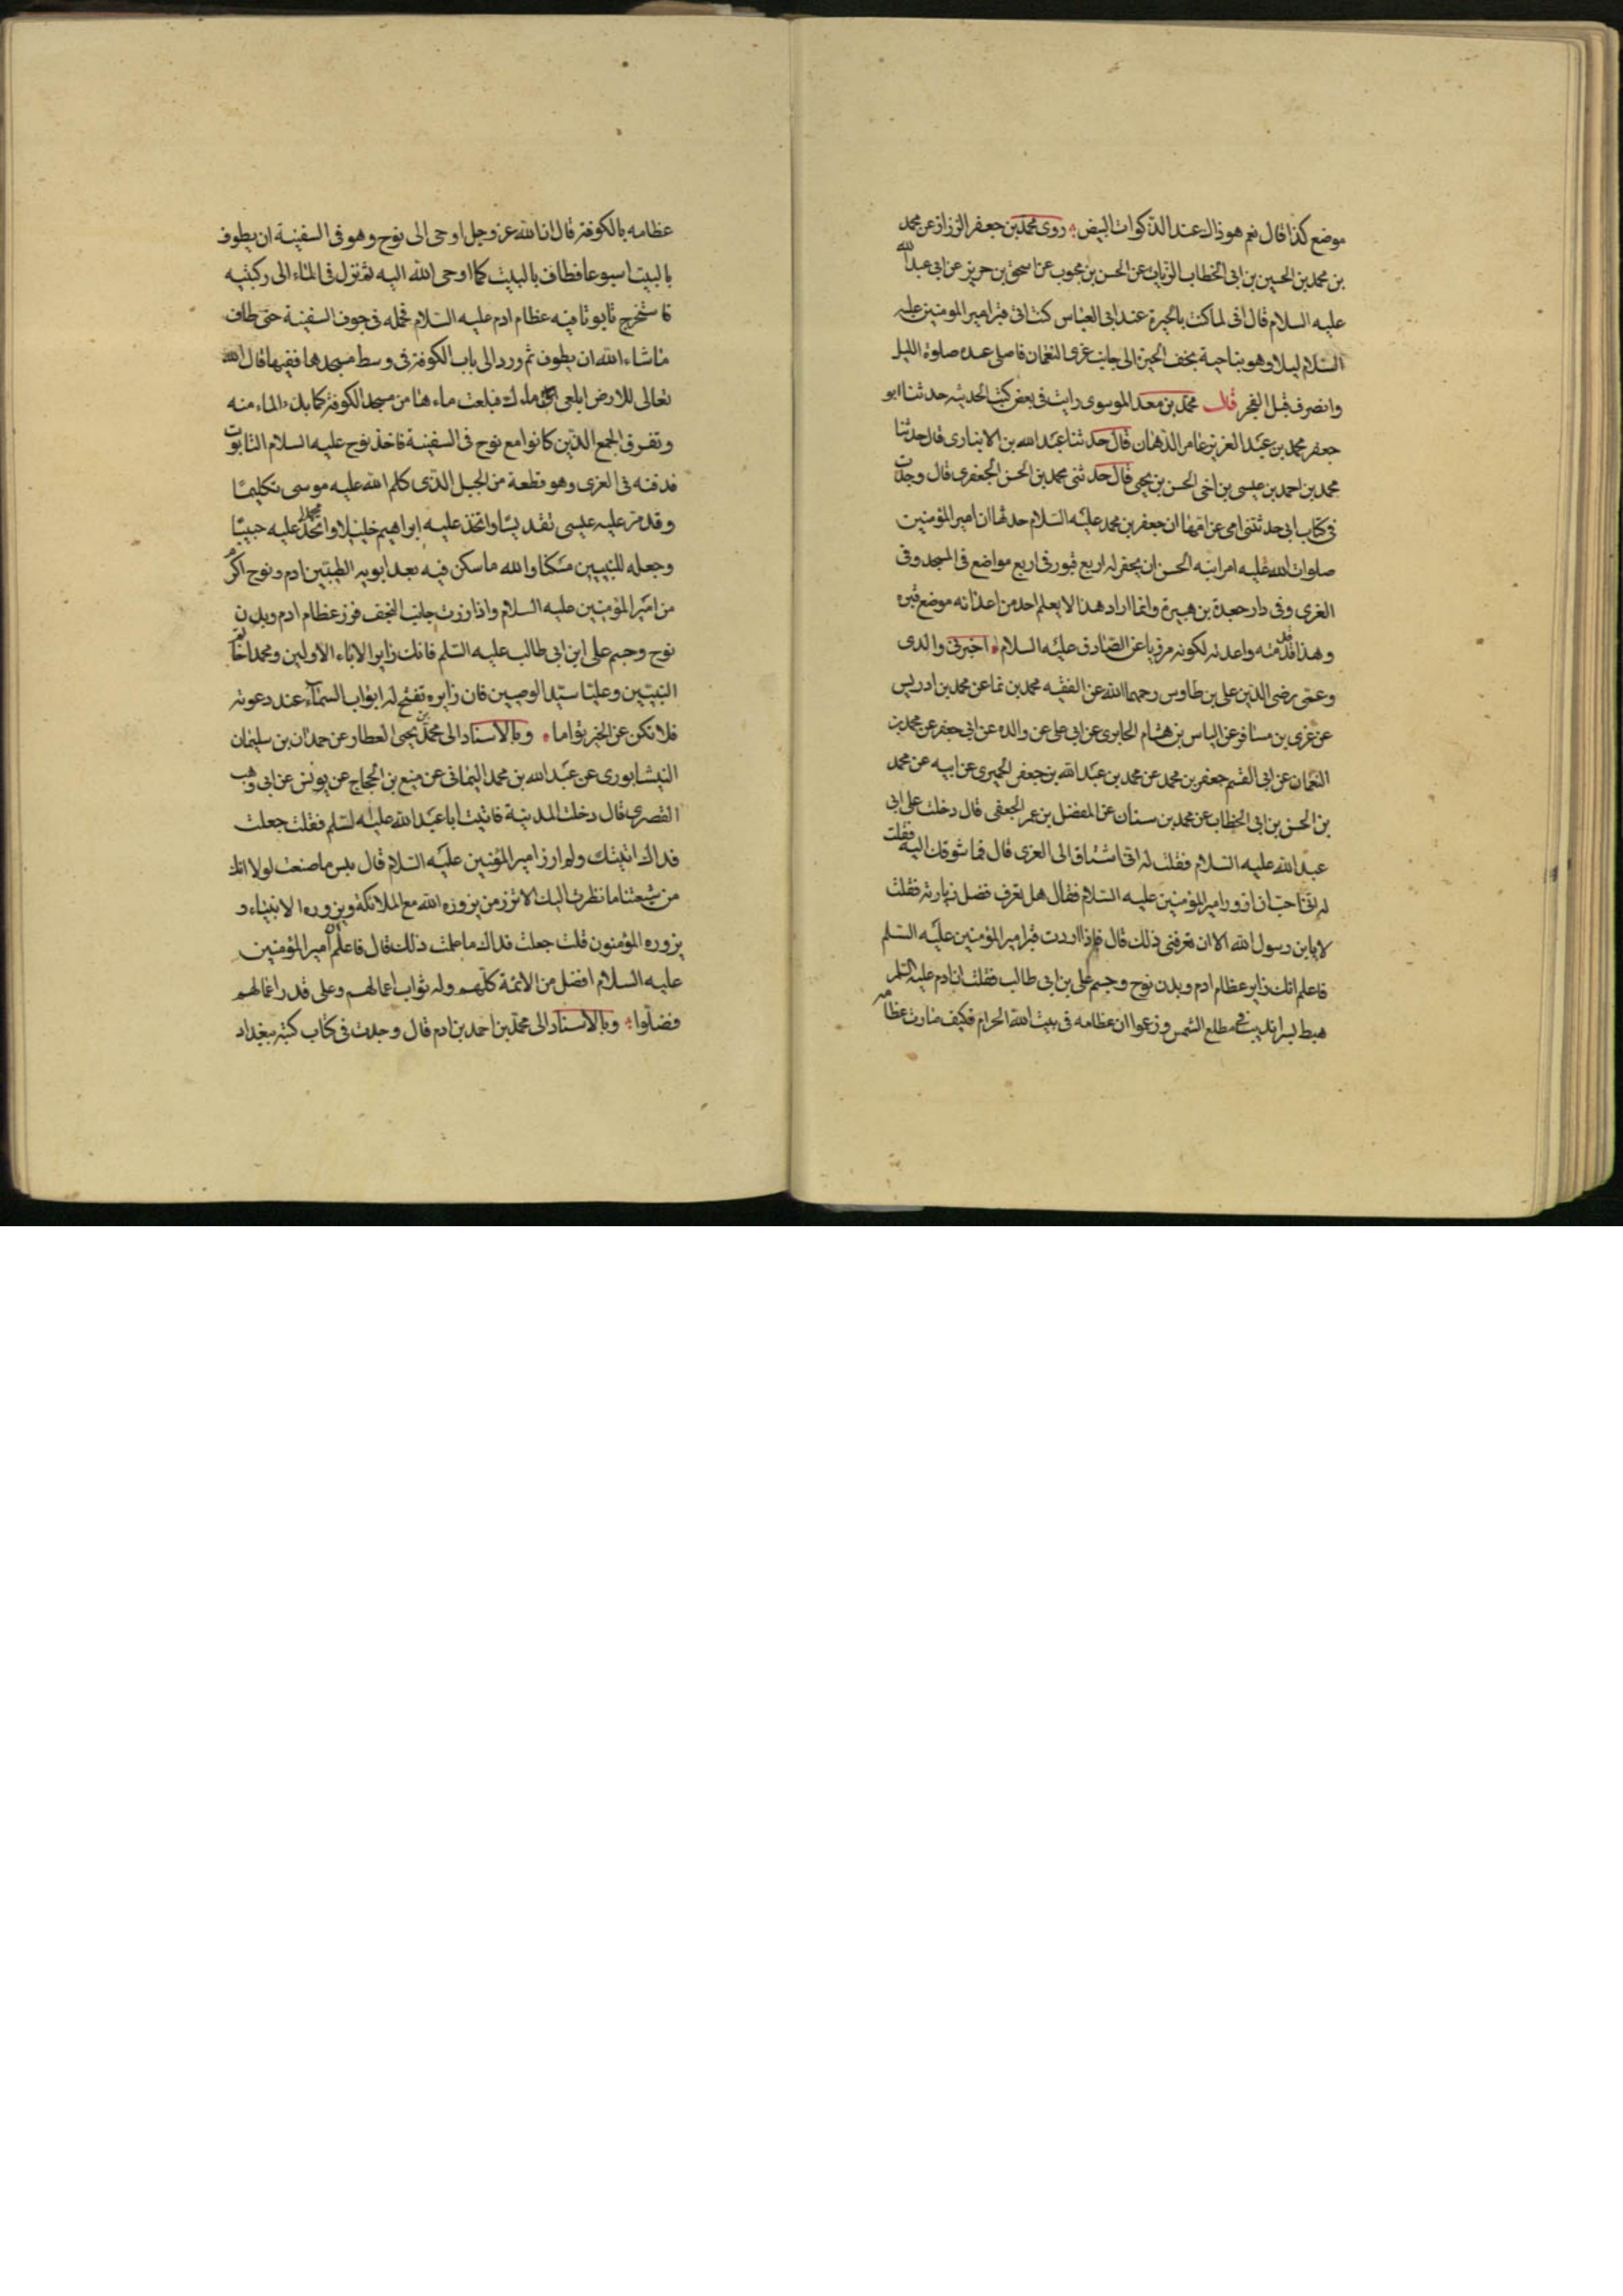 موضع كذا قال نعم هو ذاك عند الذكوات البيض روى محمد بن جعفر الرزاز عن محمد
بن محمد بن الحسين بن ابى الخطاب الزيات عن الحسن بن محبوب عن اسحق بن حريز عن ابى عبد الله
عليه السلام قال انى لما كنت بالحيرة عند ابى العباس كنت اتى قبر امير المومنين عليه
السلام ليلا وهو بناحية نجف الحيرة الى جانب غرى النعمان فاصلى عنده صلوة الليل
وانصرف قبل الفجر قال محمد بن معد الموسوى رايت فى بعض كتب الحديثه حدثنا ابو
جعفر محمد بن عبد العزيز عامر الدهان قال حدثنا عبد الله بن الانبارى قال حدثنا
محمد بن احمد بن عيسى بن اخى الحسن بن يحيى قال حدثنى محمد بن الحسن الجعفرى قال وجدت
فى كتاب ابى حدثتنى امى عن امها ان جعفر بن محمد عليه السلام حدثها ان امير المؤمنين
صلوات الله عليه امر ابنه الحسن ان يحفر له اربع قبور فى اربع مواضع فى المسجد وفى
الغرى وفى دار جعدة بن هبيرة وانما اراد هذا لا يعلم احد من اعدائه موضع قبره
وهذا قد قدمته واعدته لكونه مرويا عن الصادق عليه السلام اخبرنى والدى
وعمى رضى الدين على بن طاوس رحمهما الله عن الفقيه محمد بن نما عن محمد بن ادريس
عن عربى بن مسافر عن الياس بن هشام الحايرى عن ابى على عن والده عن ابى جعفر عن محمد بن
النعمان عن ابى القسم جعفر بن محمد عن محمد بن عبد الله بن جعفر الحميرى عن ابيه عن محمد
بن الحسن بن ابى الخطاب عن محمد بن سنان عن المفضل بن عمر الجعفى قال دخلت على ابى
عبد الله عليه السلام فقلت له انى اشتاق الى الغرى قال فما شوقك اليه فقلت
له انى احب ان ازور امير المؤمنين عليه السلام فقال هل تعرف فضل زيارته فقلت
لا يا بن رسول الله الا ان تعرفنى ذلك قال فاذا اردت قبر امير المؤمنين عليه السلم
فاعلم انك زاير عظام ادم وبدن نوح وجسم على بن ابى طالب فقلت ان ادم عليه السلم
هبط بسرانديب فى مطلع الشمس وزعموا ان عظامه فى بيت الله الحرام فكيف صارت عظامه
عظامه بالكوفة قال ان الله عز وجل اوحى الى نوح وهو فى السفينة ان يطوف
بالبيت اسبوعا فطاف بالبيت كما اوحى الله اليه ثم نزل فى الماء الى ركبتيه
فاستخرج تابوتا فيه عظام ادم عليه السلام فحمله فى جوف السفينة حتى طاف
ما شاء الله ان يطوف ثم ورد الى باب الكوفة فى وسط مسجدها ففيها قال الله
تعالى للارض ابلعى ماءك فبلعت ماءها من مسجد الكوفة كما بدء الماء منه
وتفرق الجمع الذين كانوا مع نوح فى السفينة فاخذ نوح عليه السلام التابوت
فدفنه فى الغرى وهو قطعة من الجبل الذى كلم الله عليه موسى تكليمًا
وقدس عليه عيسى تقديسًا واتخذ عليه ابراهيم خليلا واتخذ محمدا عليه حبيبًا
وجعله للنبيين مسكنا والله ما سكن فيه بعد ابويه الطيبين ادم ونوح اكرم
من امير المؤمنين عليه السلام واذا زرت جانب النجف فزر عظام ادم وبدن
نوح وجسم على ابن ابى طالب عليه السلم فانك زاير الاباء الاولين ومحمدا خاتم
النبيين وعليا سيد الوصيين فان زايره تفتح له ابواب السماء عند دعوته
فلا تكن عن الخير نواما وبالاسناد الى محمد بن يحيى العطار عن حمدان بن سليمان
النيشابورى عن عبد الله بن محمد اليمانى عن منيع بن الحجاج عن يونس عن ابى وهب
القصرى قال دخلت المدينة فاتيت ابا عبد الله عليه السلم فقلت جعلت
فداك اتيتك ولم ازر امير المؤمنين عليه السلام قال بيس ما صنعت لولا انك
من شيعتنا ما نظرت اليك الا تزر من يزوره الله مع الملائكة ويزوره الانبياء و
يزوره المؤمنون قلت جعلت فداك ما علمت ذلك قال فاعلم ان امير المؤمنين
عليه السلام افضل من الائمة كلهم وله ثواب اعمالهم وعلى قدر اعمالهم
فضلوا وبالاسناد الى محمد بن احمد بن ادم قال وجدت فى كتاب كتبه ببغداد